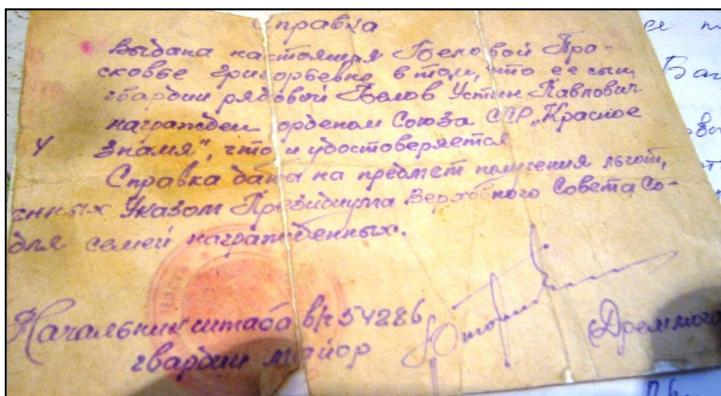 Справка
Выдана настоящая Беловой Пра-
сковье Григорьевне в том, что ее сын
гвардии рядовой Белов Устин Павлович
награжден орденом Союза ССР „Красное
Знамя", что и удостоверяется
Справка дана на предмет получения льгот,
нных Указом Президиума Верховного Совета Со-
для семей награжденных.
Начальник штаба в/ч 54286
гвардии майор